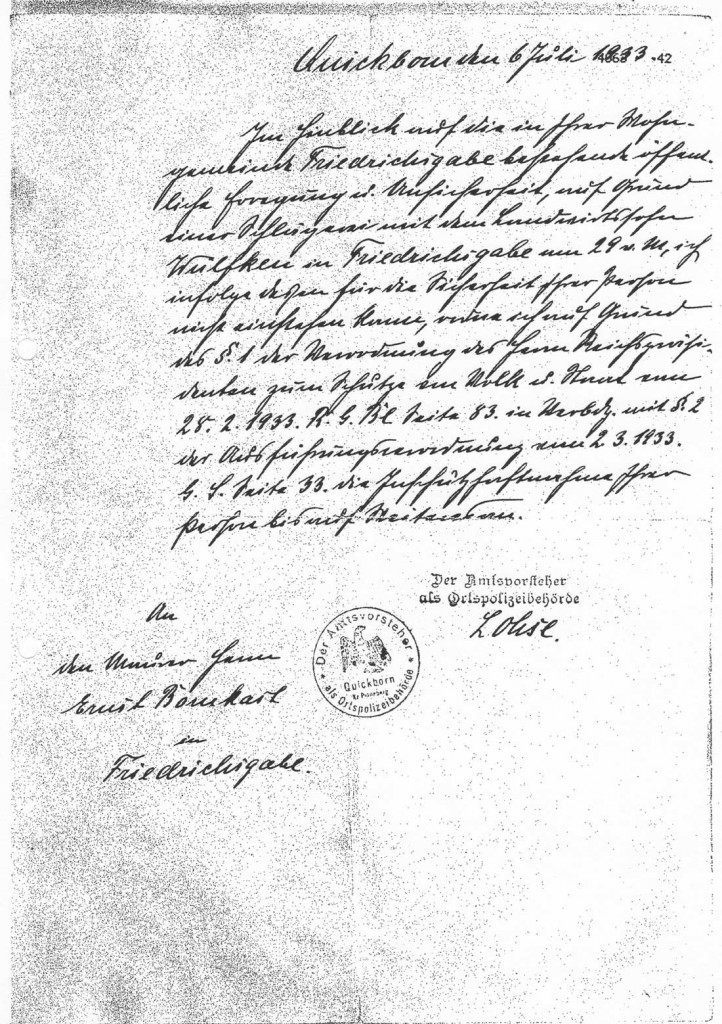 Quickborn den 6 Juli 1933.
4068 -42
Im Hinblick auf die in Ihrer Wohn-
gemeinde Friedrichsgabe bestehende öffent-
liche Erregung u. Unsicherheit, auf Grund
einer Schlägerei mit dem Landwirtssohn
Wulfken in Friedrichsgabe am 29 v. M, ich
infolge dessen für die Sicherheit Ihrer Person
nicht einstehen kann, ordne ich auf Grund
des §. 1 der Verordnung des Herrn Reichspräsi-
denten zum Schutze von Volk u. Staat vom
28. 2. 1933. R. G. Bl. Seite 83. in Verbdg. mit §. 2
der Ausführungsverordnung vom 2 3. 1933.
G. S. Seite 33. die Inschutzhaftnahme Ihrer
Person bis auf Weiteres an.
Der Amtsvorsteher
als Ortspolizeibehörde
Lohse.
Der Amtsvorsteher
Quickborn
Kr Pinneberg
als Ortspolizeibehörde
An
den Maurer Herrn
Ernst Bornkast
in
Friedrichsgabe.